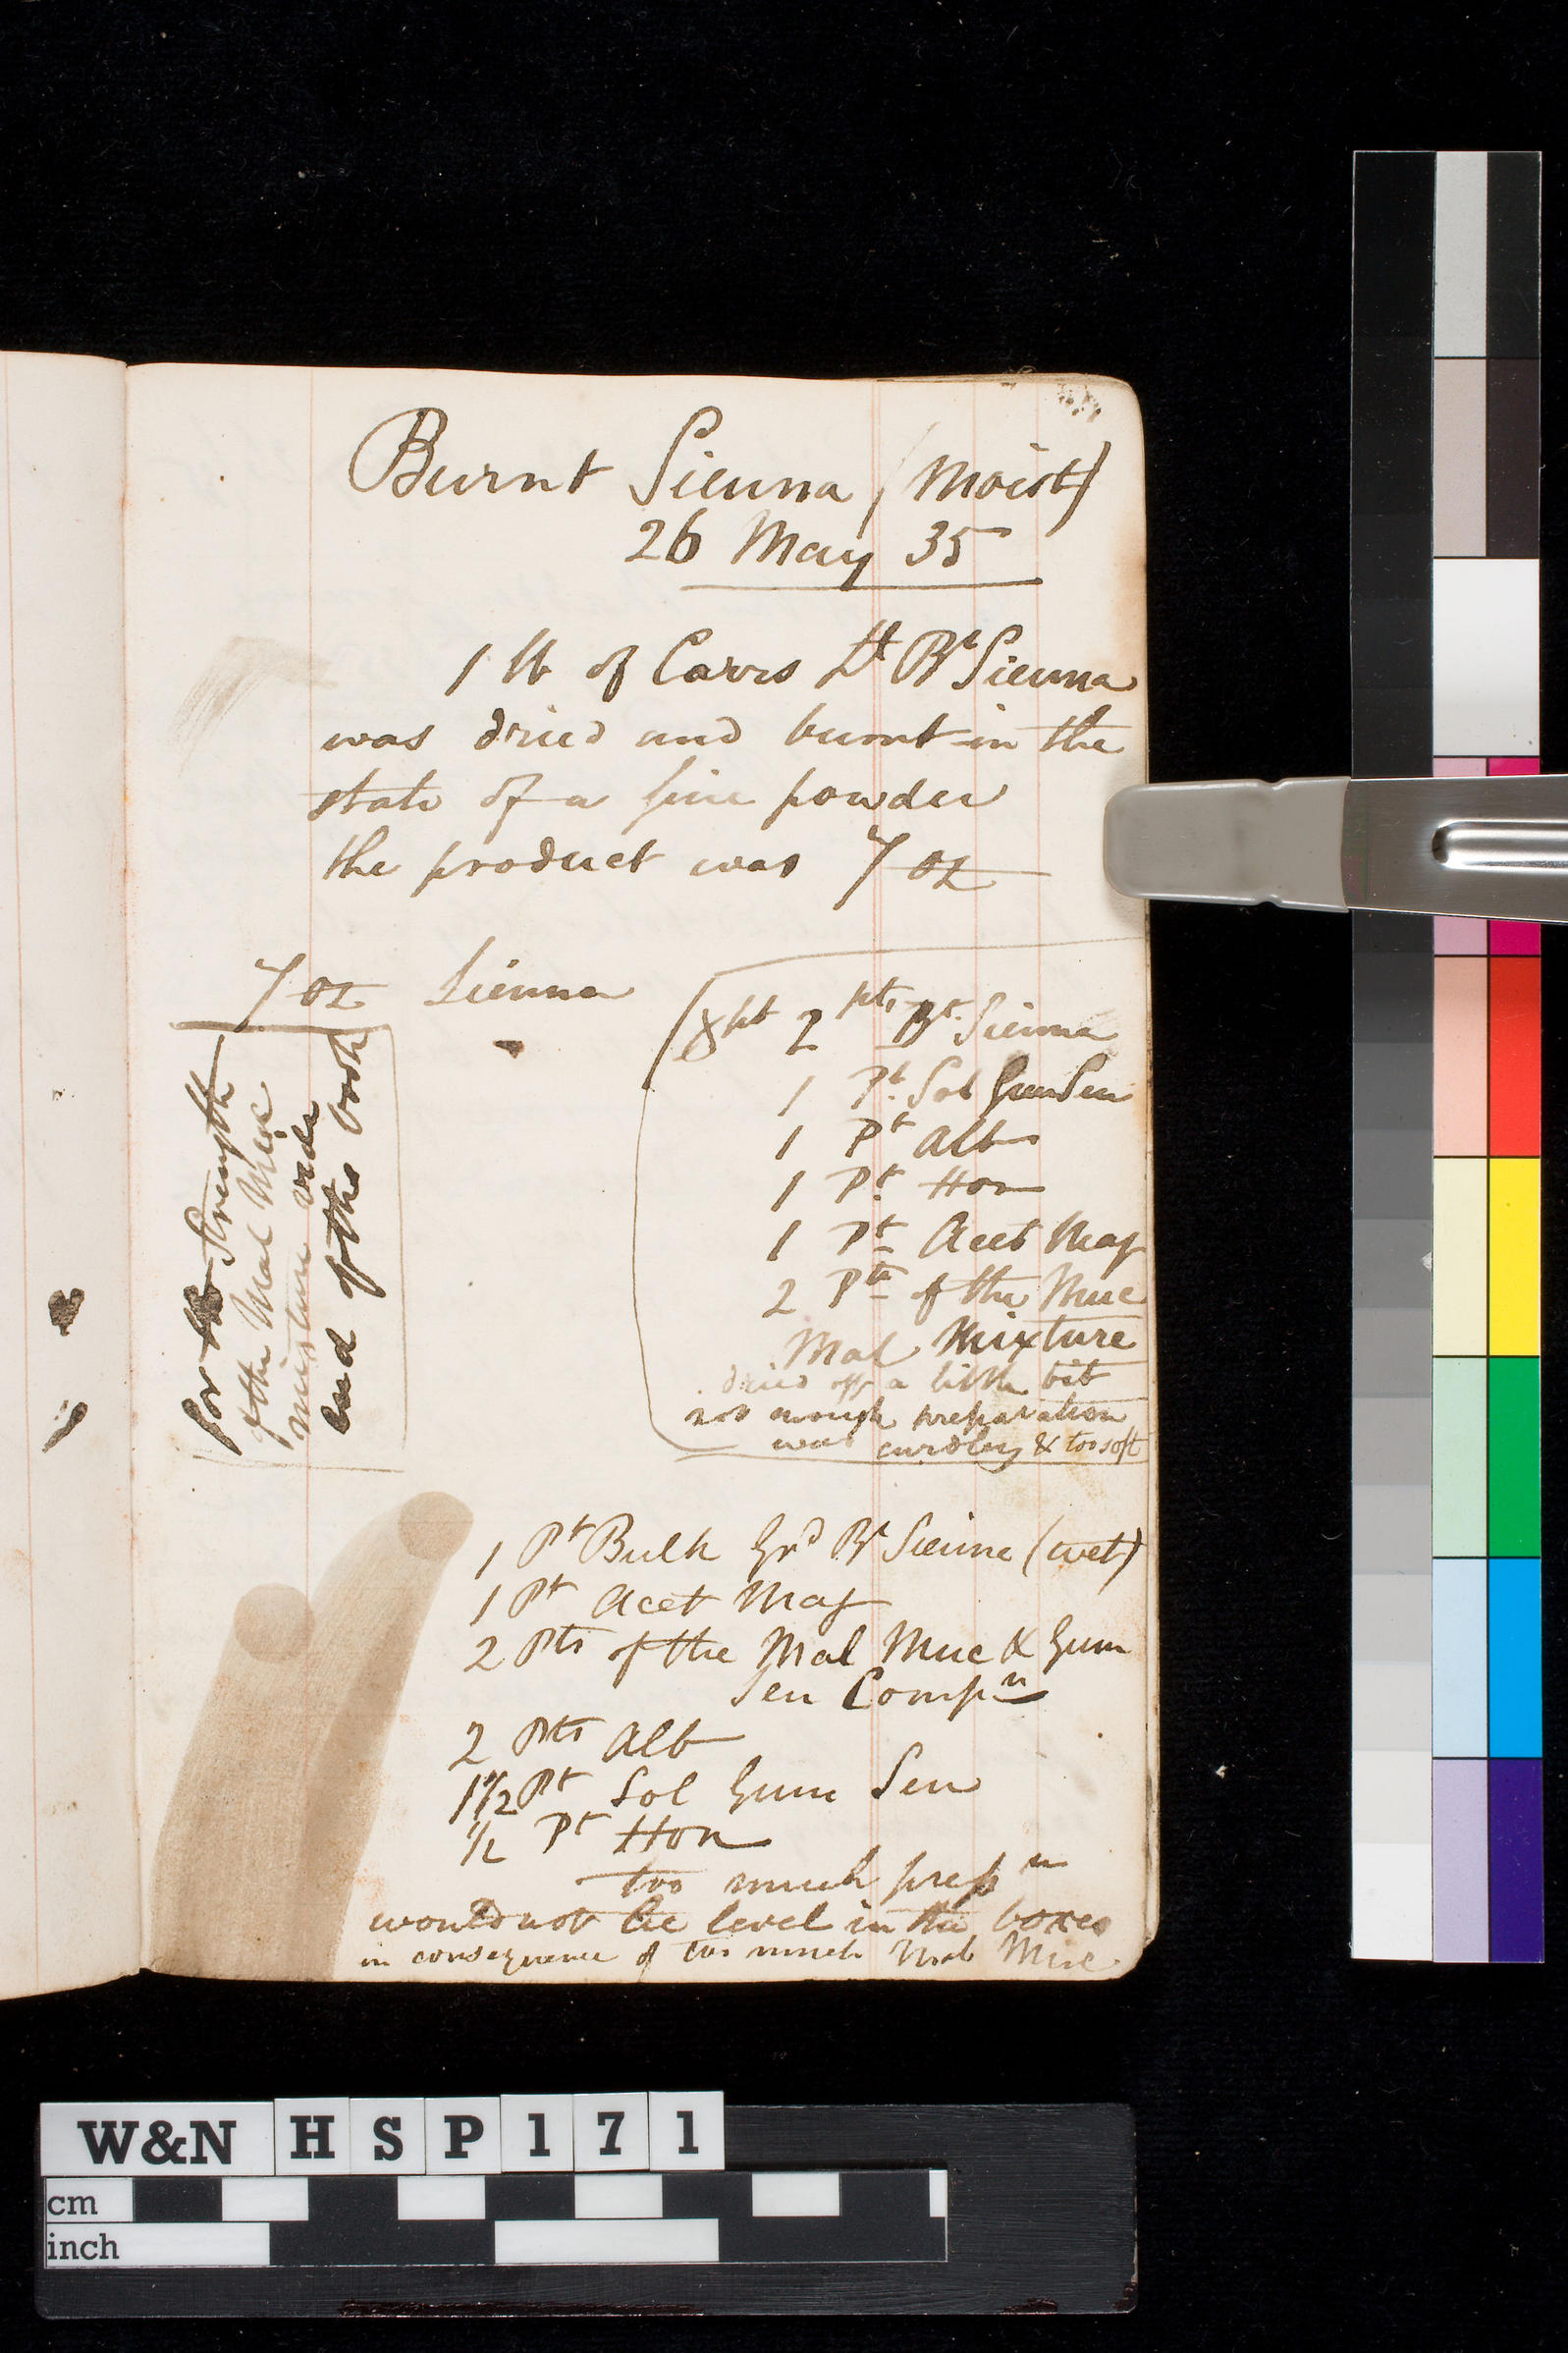 Burnt Sienna (Moist)
26 May 35
1 lb of Carrs Lt Bt Sienna
was dried and burnt in the
state of a fine powder
the product was 7 oz
7 oz Sienna
For the Strength
of the Mal Muc
mixture vide
end of the book
Expt 2 pts Bt Sienna
1 Pt Sol Gum Sen
1 Pt Alb
1 Pt Hon
1 Pt Acet Mag
2 Pts of the Muc
Mal Mixture
dried off a little bit
not enough preparation
was curdley & too soft
1 Pt Bulk Grd Bt Sienna (wet)
1 Pt Acet Mag
2 Pts of the Mal Muc & Gum
Sen Compn
2 Pts Alb
1 1/2 Pt Sol Gum Sen
1/2 Pt Hon
too much prepn
would not lie level in the boxes
in consequence of too much Mal Muc
W&N HSP171
cm
inch